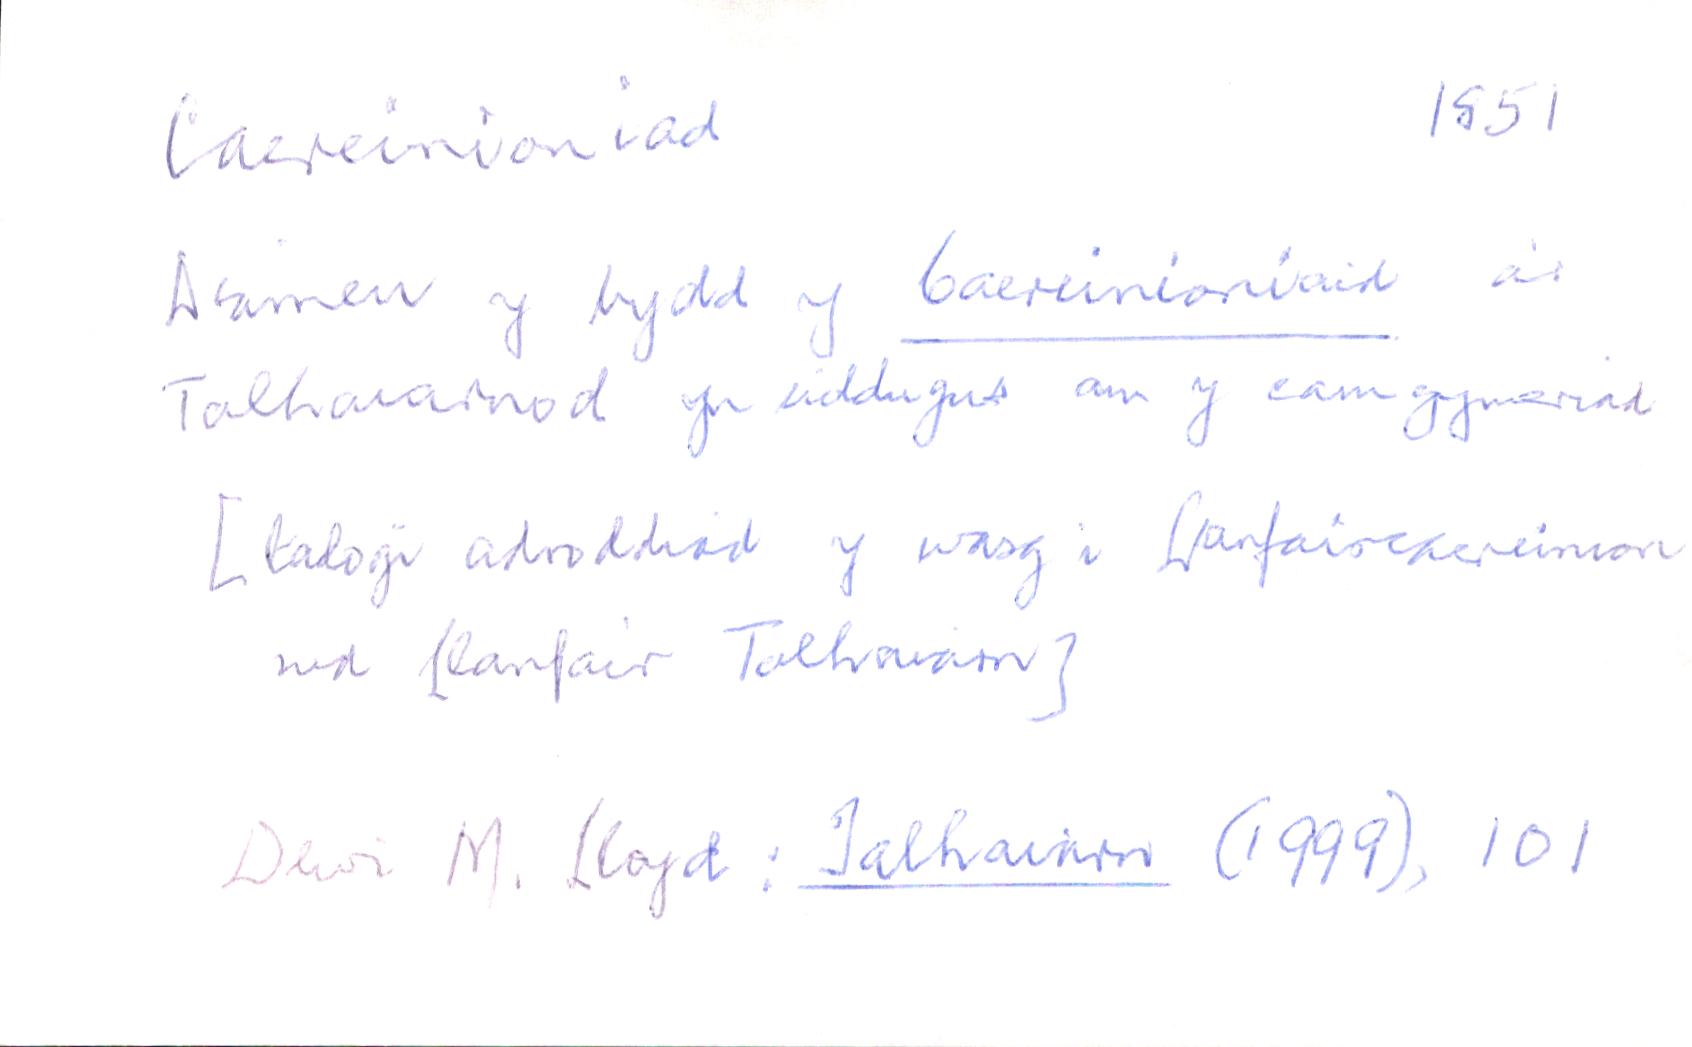 Caereinioniad 1851
y bydd y Caereinioniaid a'r
Talhaiarnod yn faddugus am y camgymeriad
[talogi adroddiad y wasg i Lanfaircaereinion
nid Llanfair Talhaiarn]
Dewi M. Lloyd : Talhaiarn (1999), 101